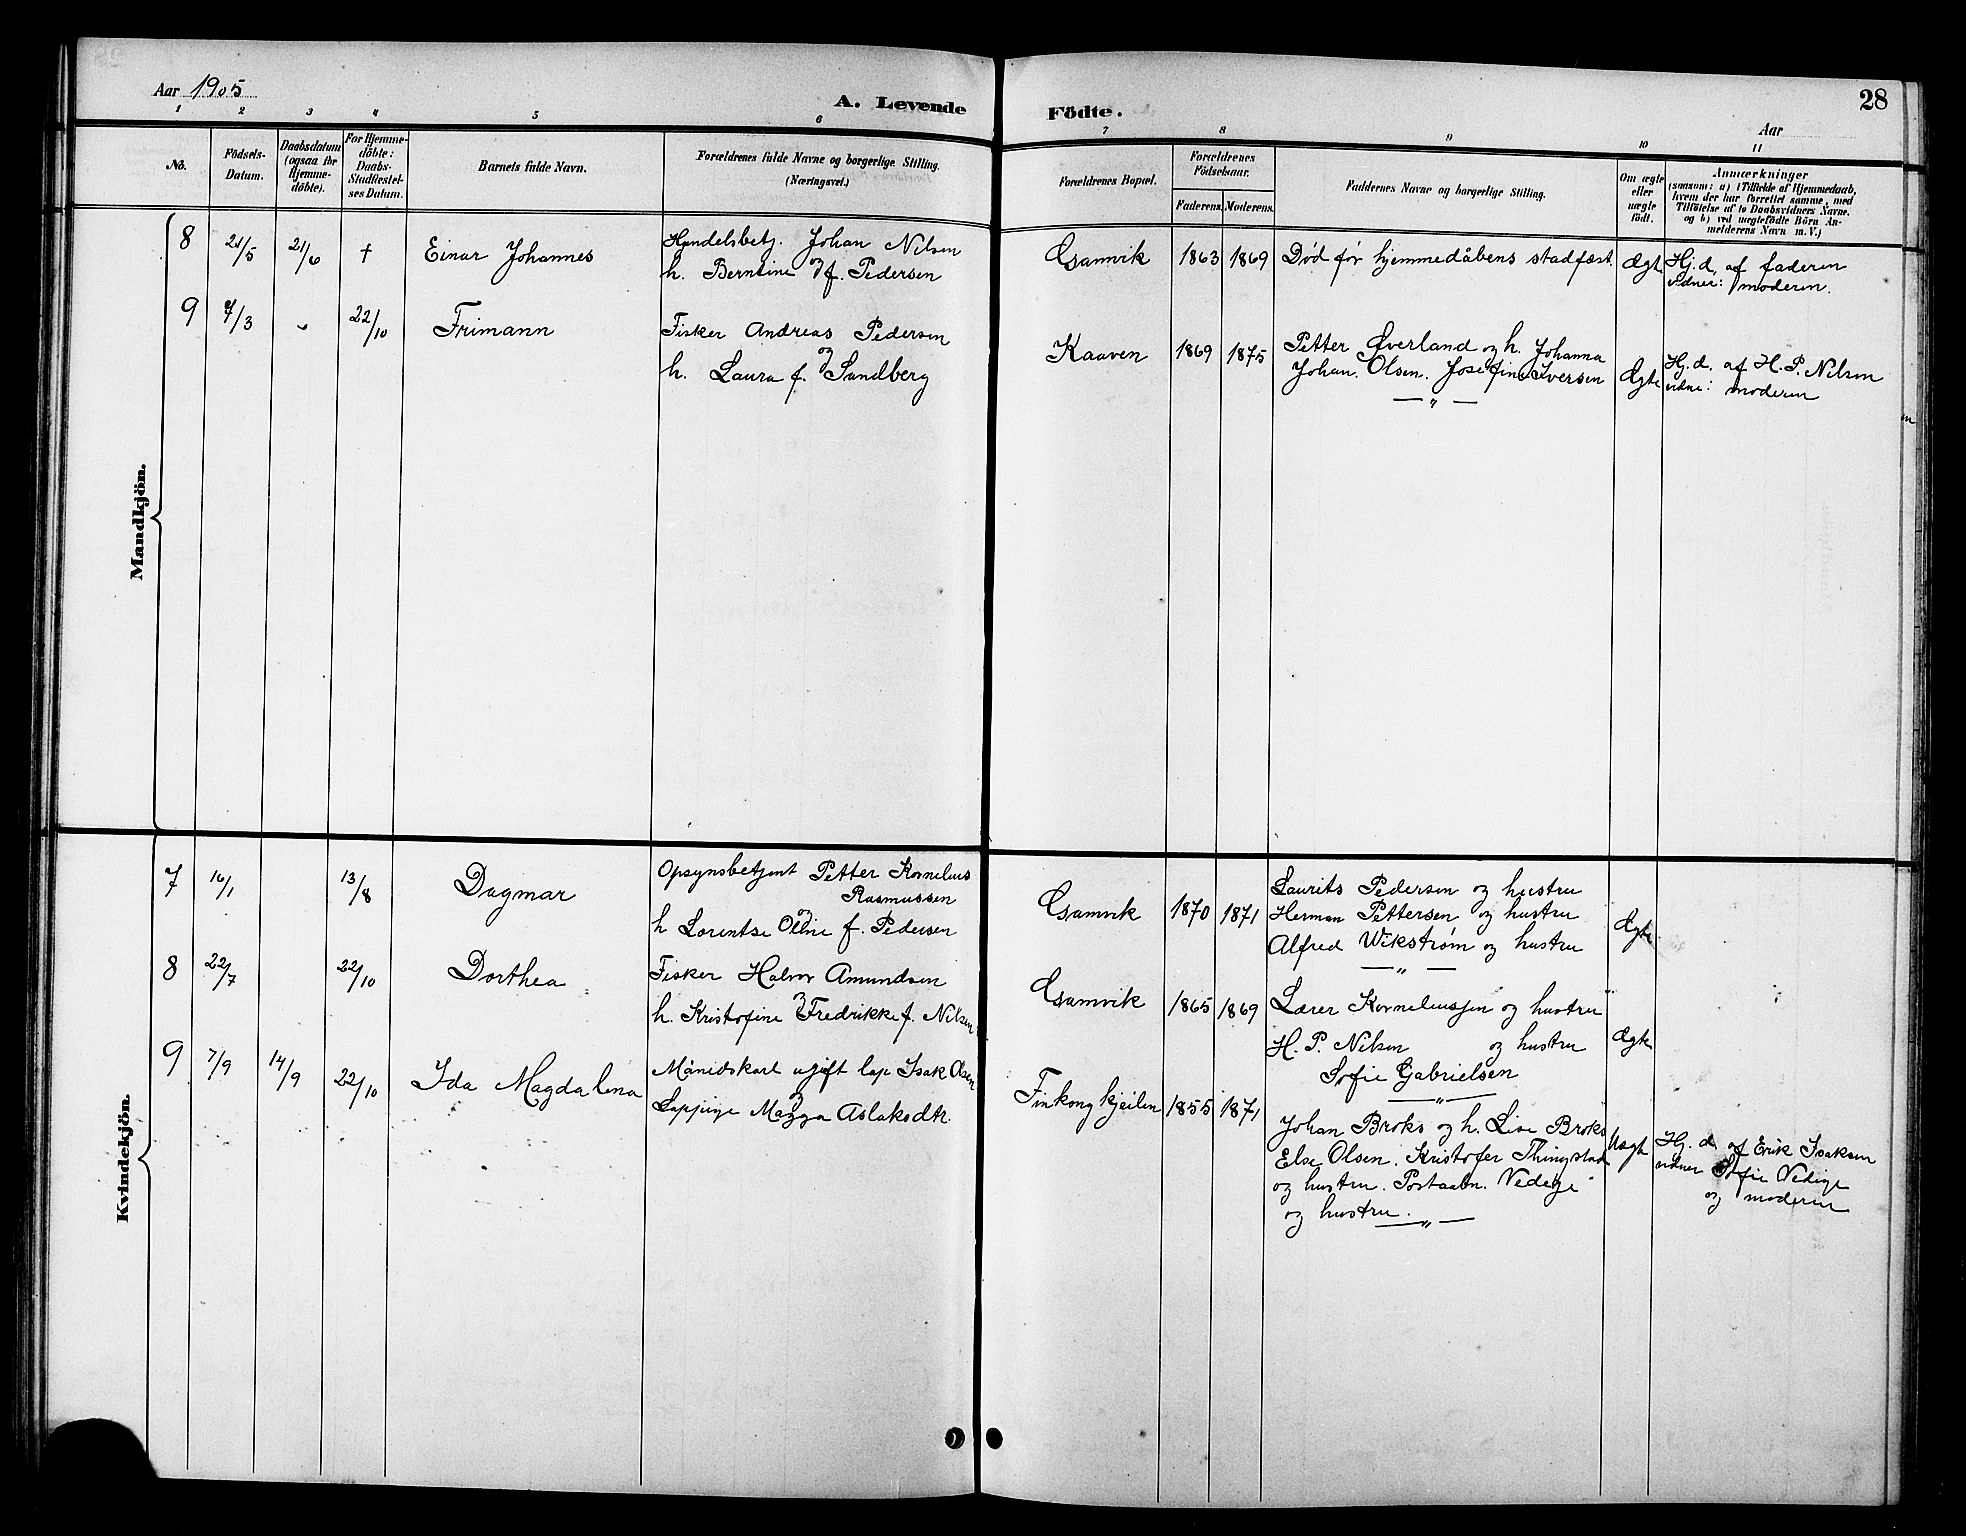 Aar 1905
A. Levende
Födte.
28
Aar
1 2 3 4 5 6 7 8 9 10 11
No.
Födsels-
Datum.
Daabsdatum
(ogsaa for
Hjemme-
döbte).
For Hjemme-
döbte:
Daabs-
Stadfæstel-
ses Datum.
Barnets fulde Navn.
Forældrenes fulde Navne og borgerlige Stilling.
(Næringsvei.)
Forældrenes Bopæl.
Forældrenes
Födselsaar.
Faderens. Moderens.
Faddernes Navne og borgerlige Stilling.
Om ægte
eller
uægte
födt.
Anmærkninger
(saasom: a) i Tilfælde af Hjemmedaab,
hvem der har forrettet samme, med
Tilföielse af to Daabsvidners Navne.
og b) ved uægtefödte Börn An-
melderens Navn m. V.)
Mandkjön.
8 21/5 21/6 † Einar Johannes
Handelsbetj. Johan Nilsen
og
h. Berntine f. Pedersen
1863 1869 Død før hjemmedåbens stadfæst. Ægt
Hj.d. af faderen
vidner: moderen.
9 4/3 22/10 Frimann
Fisker Andreas Pedersen
og
h. Laura f. Sandberg
Kaaven 1869 1875
Petter Øverland og h. Johanna
Johan Olsen. Josefine Iversen
— " —
Ægte
Hj.d. af H. P. Nilsen
vidne: moderen
Kvindekjön.
7 16/1 13/8 Dagmar
Opsynsbetjent Petter Kornelius
Rasmussen
og
h Lorentse Oline f. Pedersen
1870 1871
Laurits Pedersen og hustru
Herman Pettersen og hustru
Alfred Wikstrøm og hustru
— " —
Ægte
8 22/7 22/10 Dorthea
Fisker Halvor Amundsen
og
h. Kristofine Fredrikke f. Nilsen
1865 1869
Lærer Korneliussen og hustru
H. P. Nilsen og hustru
Sofie Gabrielsen
— " —
Ægte
9 7/9 14/9 22/10 Ida Magdalena
ugift lap Isak Olsen
og
Lappige Magga Aslaksdtr.
Finkongkjeilen 1855 1871
Johan Broks og h. Lise Broks
Else Olsen. Kristofer Thingstad
og hustru. Postaabn. Nedige
og hustru.
— " —
Uægte
Hj.d. af Erik Isaksen
vidner Sofie Nedige
og moderen